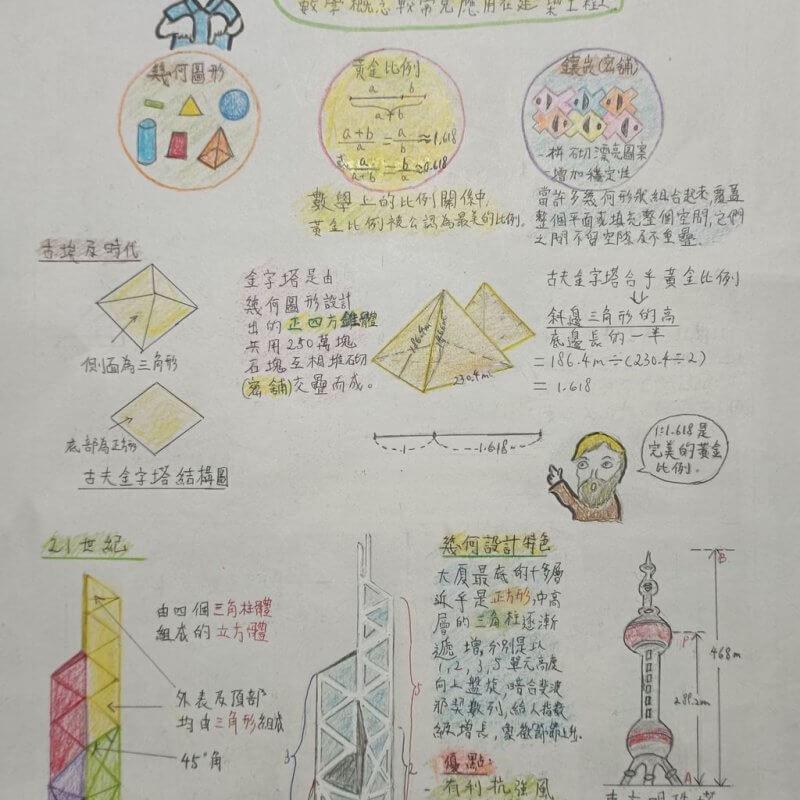 數學概念較常見應用在建築工程上
幾何圖形
黃金比例
a b
a+b
a+b/a = a/b ≈ 1.618
a/a+b = b/a ≈ 0.618
鑲嵌(密鋪)
-拼砌漂亮圖案
-增加穩定性
數學上的比例關係中,
黃金比例被公認為最美的比例。
當許多幾何形狀組合起來,覆蓋
整個平面或填充整個空間,它們
之間不留空隙及不重疊.
古埃及時代
側面為三角形
底部為正方形
古夫金字塔結構圖
金字塔是由
幾何圖形設計
出的正四方錐體
共用250萬塊
石塊互相堆砌
(密鋪)交疊而成。
186.4m
230.4m
古夫金字塔合乎黃金比例
斜邊三角形的高
底邊長的一半
=186.4m÷(230.4÷2)
=1.618
1
1.618
1:1.618是
完美的黃金
比例。
21世紀
由四個三角柱體
組成的立方體
外表及頂部
均由三角形組成
45°角
3
5
2
幾何設計特色
大廈最底的十多層
近乎是正方形,中高
層的三角柱逐漸
遞增,分別是以
1,2,3,5單元高度
向上盤旋,暗合斐波
那契數列,給人指數
級增長,象徵節節上升.
優點:
-有利抗強風
B
P
A
468m
289.2m
東方明珠塔